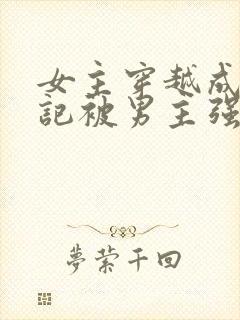 女主穿越成
記被男主强
夢縈千回